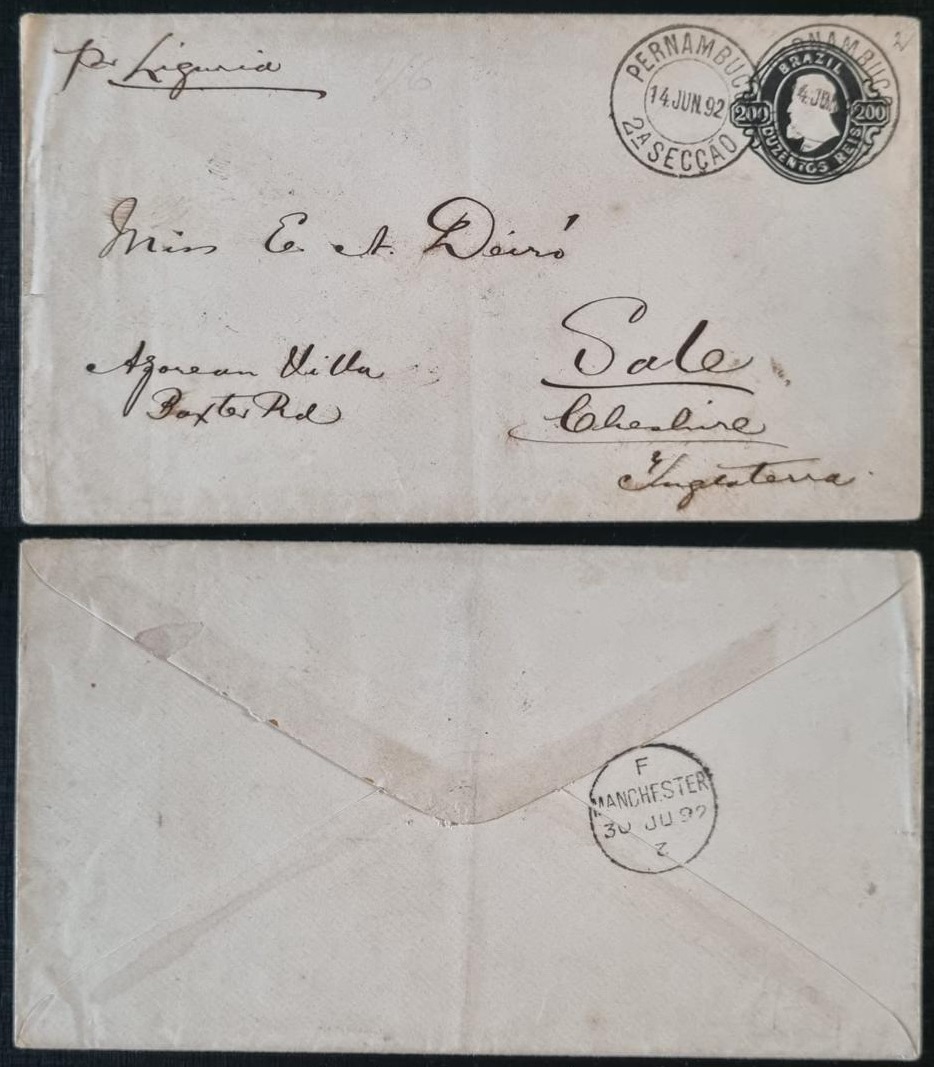 pr Liguria
PERNAMBUCO
14 JUN. 92
2A SECÇÃO
PERNAMBUCO
BRAZIL
200 200
DUZENTOS REIS
Miss E A. Deiró
Azorean Villa
Baxter Rd
Sale
Cheshire
Inglaterra
F
MANCHESTER
30 JU 92
Z